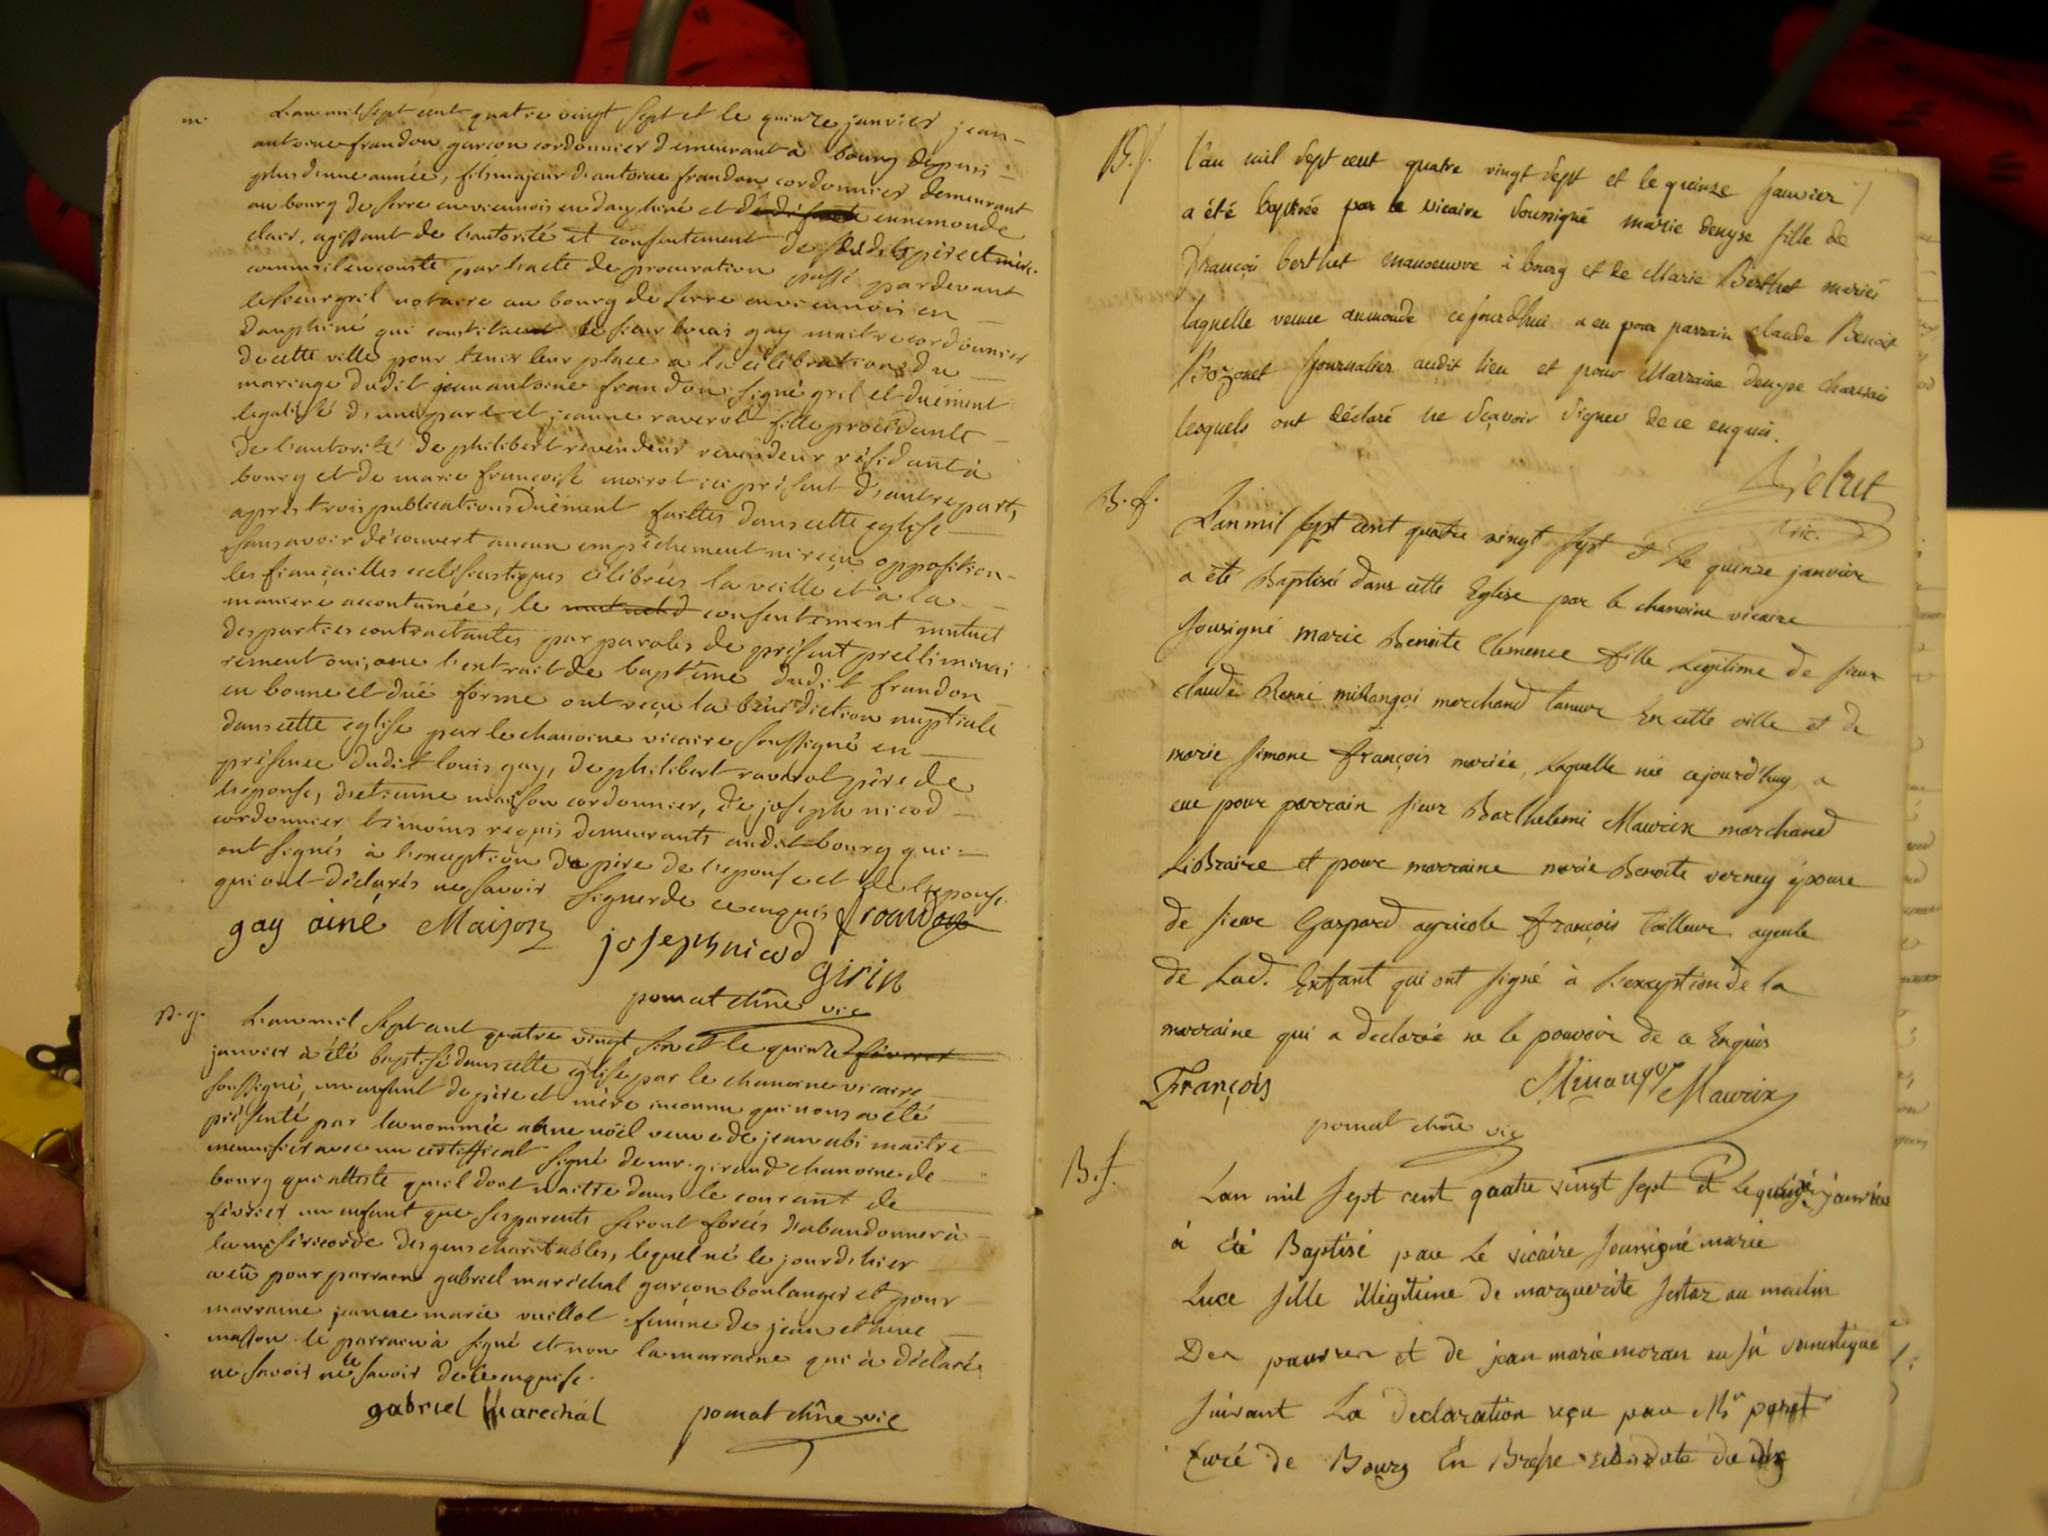 m.
L'an mil sept cent quatre vingt sept et le quinze janvier jean
antoine frandon garcon cordonnier demeurant à bourg depuis
plus d'une année, fils majeur d'antoine frandon cordonnier demeurant
au bourg de serre en viennois en dauphiné et de ennemonde
clair, agissant de l'autorité et consentement de sesdits père et mère
comme il en conste par l'acte de procuration passé pardevant
le sieur gril notaire au bourg de serre en viennois en
dauphiné qui constituent le sieur louis gay maitre cordonnier
de cette ville pour tenir leur place a la célébration du
mariage dudit jean antoine frandon signé gril et duement
legalisé d'une part et jeanne raverot fille procédante
de l'autorité de philibert revendeur revendeur résidant à
bourg et de marie françoise moirot ici présent d'autre part,
après trois publications duëment faittes dans cette eglise
sans avoir découvert aucun empêchement ni reçu opposition
les fiancailles ecclésiastiques célébrées la veille et a la
maniere accoutumée, le mutuel consentement mutuel
des parties contractantes par paroles de présent prélliminai
rement oui, avec l'extrait de baptême dudit frandon
en bonne et duë forme ont reçu la bénédiction nuptiale
dans cette eglise par le chanoine vicaire soussigné en
présence dudit louis gay, de philibert raverot père de
l'épouse, d'etienne maison cordonnier, de joseph nicod
cordonnier témoins requis demeurants audit bourg qui
ont signés à l'exception du père de l'epouse et de l'epouse
qui ont déclarés ne savoir signer de ce enquis frandon
gay ainé Maison
joseph nicod
girin
pomat chne vic
B. g.
L'an mil sept cent quatre vingt sept et le quinze fevrier
janvier à été baptisé dans cette église par le chanoine vicaire
soussigné, un enfant de père et mère inconnu qui nous a été
présenté par la nommée anne noël veuve de jean abi maitre
menuisier avec un certifficat signé de mr. giraud chanoine de
bourg qui atteste qu'il doit naitre dans le courant de
février un enfant que ses parents seront forcés d'abandonner à
la miséricorde des gens charitables, lequel né le jour d'hier
a eu pour parrain gabriel maréchal garçon boulanger et pour
marraine jeanne marie vuillot femme de jean
masson le parrain à signé et non la marraine qui à déclaré
ne savoir ne le savoir de ce enquise.
gabriel Marechal pomat chne vic
B. f.
l'an mil sept cent quatre vingt sept et le quinze janvier
a été baptisée par le vicaire soussigné marie denyse fille de
françois berthet manoeuvre à bourg et de Marie Berthet mariés
laquelle venue au monde cejourdhui a eu pour parrain claude Benoit
journalier audit lieu et pour Marraine denyse
lesquels ont déclaré ne sçavoir signer de ce enquis.
vic.
B. f.
L'an mil sept cent quatre vingt sept et le quinze janvier
a été Baptisée dans cette Eglise par le chanoine vicaire
sousigné marie Benoite Clemence fille légitime de sieur
claude René mirangoi marchand taneur En cette ville et de
marie simone françois mariée, laquelle née cejourd'huy a
eue pour parrain sieur Barthelemi Maurix marchand
Libraire et pour marraine marie Benoite verney épouse
de sieur Gaspard agricole françois tailleur, ayeule
de Lad. Enfant qui ont signé à l'exception de la
marraine qui a declarée ne le pouvoir de ce Enquis
François Mirangoi Maurix
pomat chne vic
B. f.
L'an mil sept cent quatre vingt sept et le quinze janvier
à été Baptisé par le vicaire soussigné marie
Luce fille illégitime de marguerite au moulin
Des pauvres et de jean marie moran domestique
suivant La declaration reçu par Mr
Curé de Bourg En Bresse en date du dix